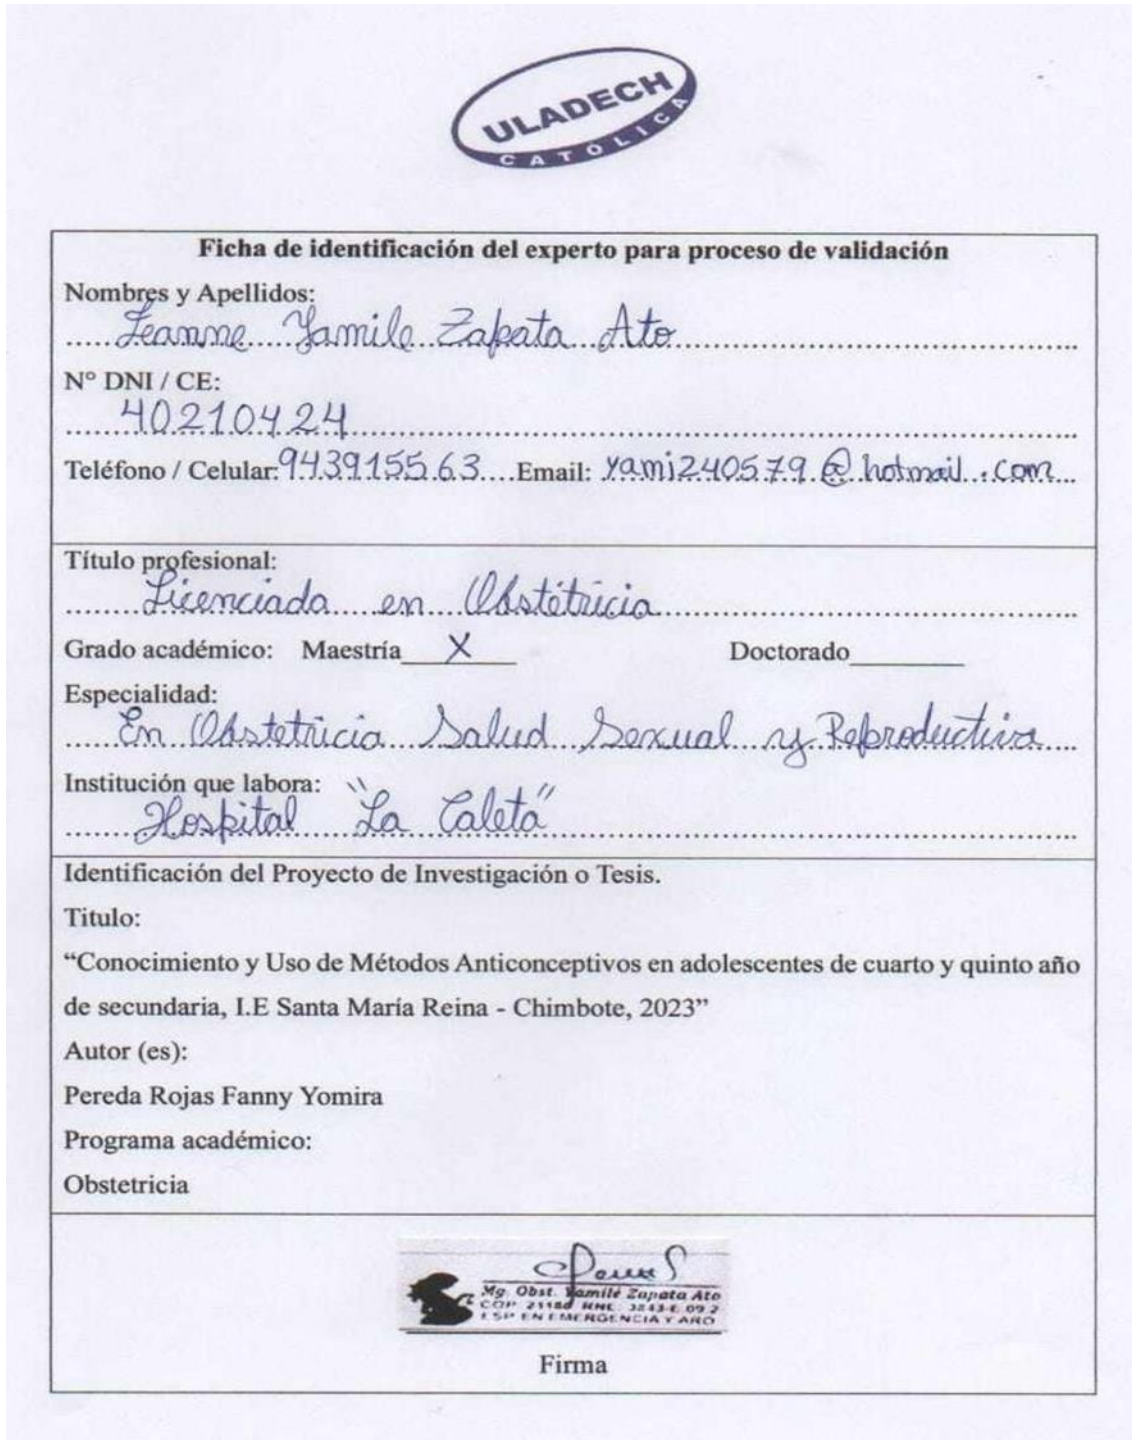 ULADECH
CATOLICA
Ficha de identificación del experto para proceso de validación
Nombres y Apellidos:
Jeanne Yamile Zapata Ato
N° DNI / CE:
40210424
Teléfono / Celular: 943915563 Email: yami240579@hotmail.com
Título profesional:
Licenciada en Obstétricia
Grado académico: Maestría X Doctorado
Especialidad:
En Obstetricia Salud Sexual y Reproductiva
Institución que labora:
Hospital "La Caleta"
Identificación del Proyecto de Investigación o Tesis.
Titulo:
“Conocimiento y Uso de Métodos Anticonceptivos en adolescentes de cuarto y quinto año
de secundaria, I.E Santa María Reina - Chimbote, 2023”
Autor (es):
Pereda Rojas Fanny Yomira
Programa académico:
Obstetricia
Mg. Obst. Yamilé Zapata Ato
COP 21180 RNE
ESP EN EMERGENCIA Y ARO
Firma